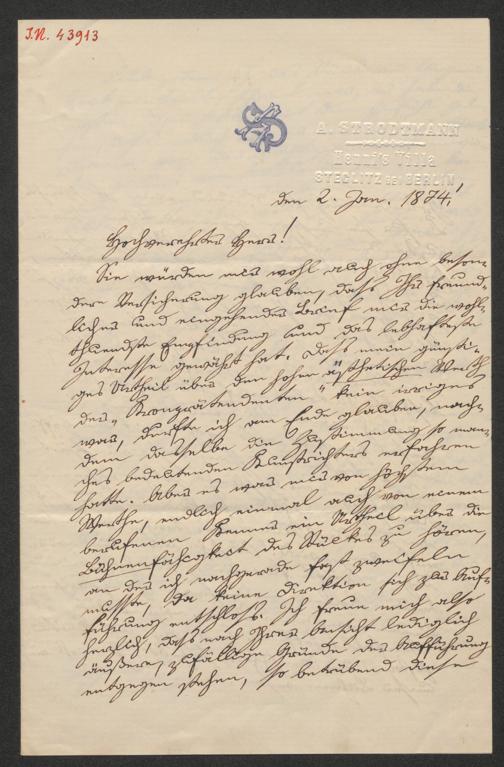 J.N. 43913
A. STRODTMANN
Henni's Villa
STEGLITZ BEI BERLIN,
den 2. Jan. 1874.
Hochverehrter Herr!
Sie würden mir wohl auch ohne beson-
dere Versicherung glauben, dass Ihr freund-
licher und eingehender Brief mir die wohl-
thuendste Empfindung und das lebhafteste
Interesse gewährt hat. Dass mein günsti-
ges Urtheil über den hohen ästhetischen Werth
der „Kronprätendenten" kein irriges
war, durfte ich am Ende glauben, nach-
dem dasselbe die Zustimmung so man-
ches bedeutenden Kunstrichters erfahren
hatte. Aber es war mir von höchstem
Werthe, endlich einmal auch von einem
berufenen Kenner ein Urtheil über die
Bühnenfähigkeit des Stückes zu hören,
an der ich nachgerade fast zweifeln
musste, da keine Direktion sich zur Auf-
führung entschloss. Ich freue mich also
herzlich, dass nach Ihrer Ansicht lediglich
äußere, zufällige Gründe der Aufführung
entgegen stehen, so betrübend diese